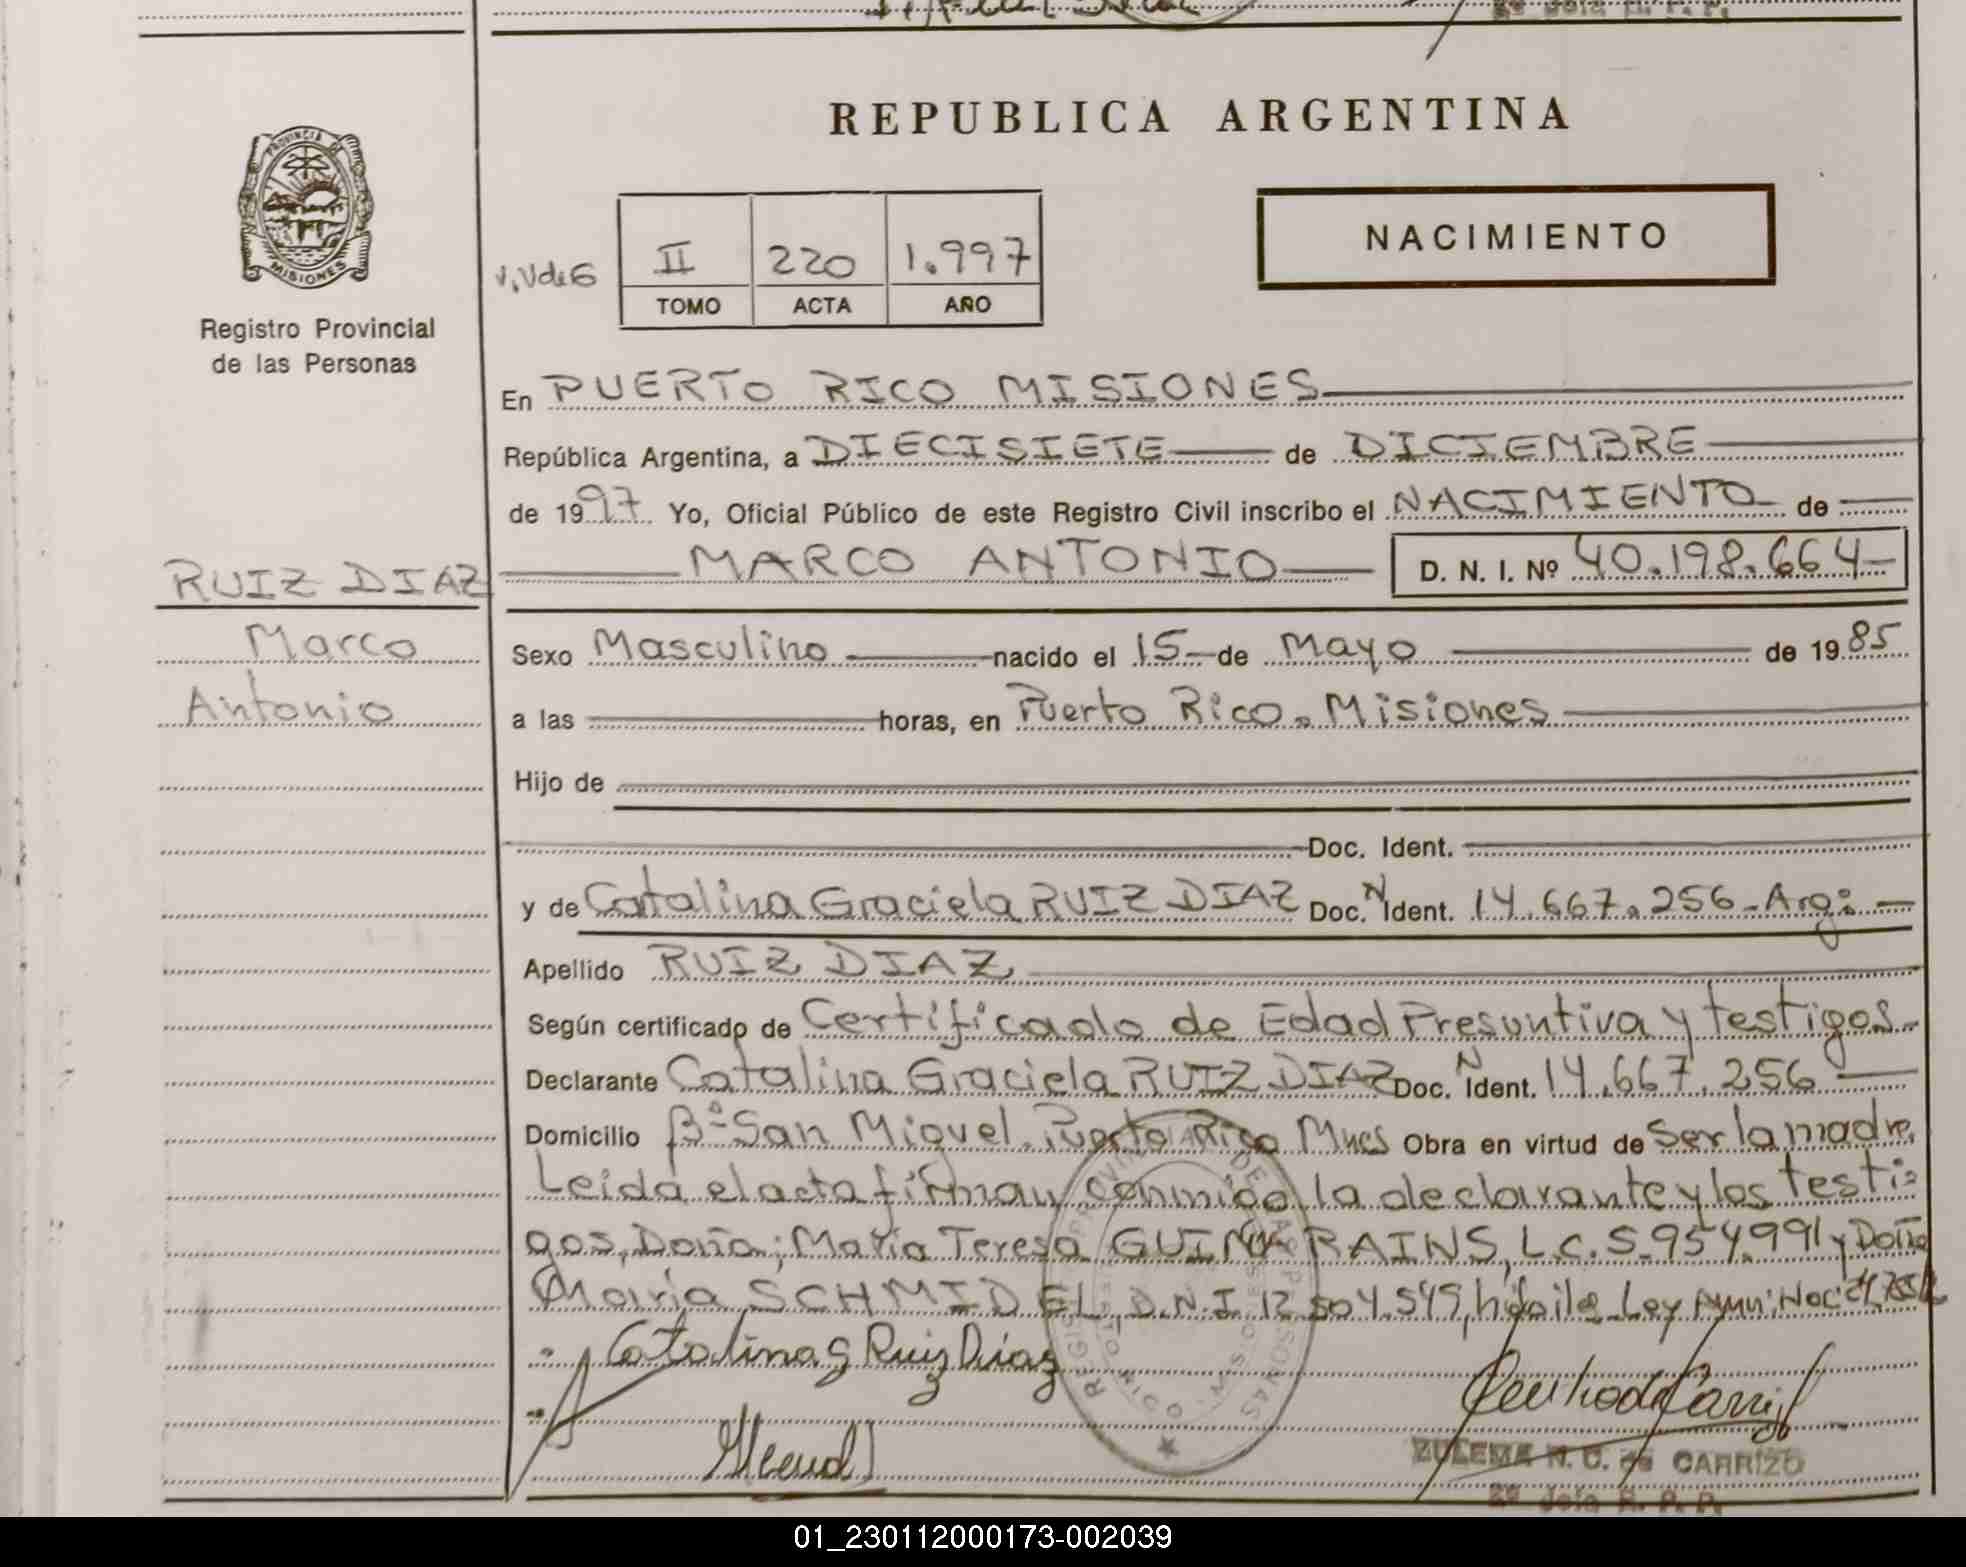 REPUBLICA ARGENTINA
PROVINCIA DE
MISIONES
Registro Provincial
de las Personas
NACIMIENTO
II 220 1.997
TOMO ACTA AÑO
En PUERTO RICO MISIONES
República Argentina, a DIECISIETE de DICIEMBRE
de 1997 Yo, Oficial Público de este Registro Civil inscribo el NACIMIENTO de
RUIZ DIAZ
Marco
Antonio
MARCO ANTONIO D. N. I. Nº 40.198.664
Sexo Masculino nacido el 15 de Mayo de 1985
a las horas, en Puerto Rico. Misiones
Hijo de
Doc. Ident.
y de Catalina Graciela RUIZ DIAZ Doc. N Ident. 14.667.256 - Arg:
Apellido RUIZ DIAZ
Según certificado de Certificado de Edad Presuntiva y testigos
Declarante Catalina Graciela RUIZ DIAZ Doc. N Ident. 14.667.256
Domicilio Bº San Miguel. Puerto Rico Mnes Obra en virtud de Ser la madre,
Leida el acta firman conmigo la declarante y los testi-
gos, Doña; Maria Teresa GUIMARAINS, L.C. 5.954.991 y Doña
Maria SCHMIDEL, D.N.I. 12.504.549, Ley
Catalina G Ruiz Diaz
ZULEMA N. C. de CARRIZO
2º Jefa R. P. P.
01_230112000173-002039